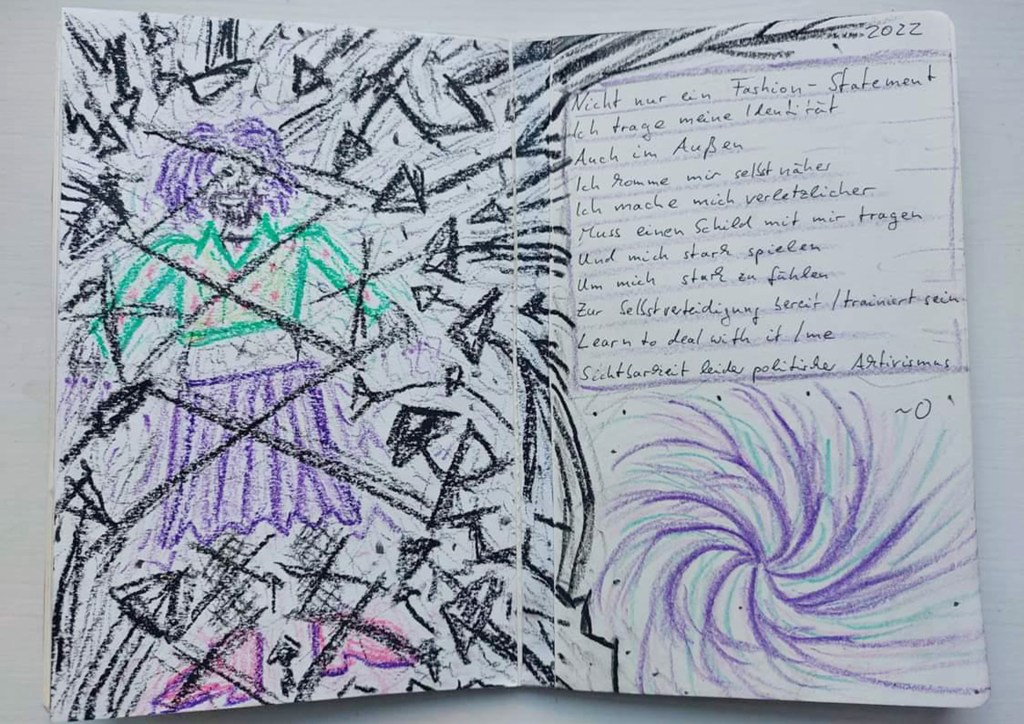 2022
Nicht nur ein Fashion-Statement
Ich trage meine Identität
Auch im Außen
Ich komme mir selbst näher
Ich mache mich verletzlicher
Muss einen Schild mit mir tragen
Und mich stark spielen
Um mich stark zu fühlen
Zur Selbstverteidigung bereit/trainiert sein
Learn to deal with it/me
Sichtbarkeit leider politischer Aktivismus
~O